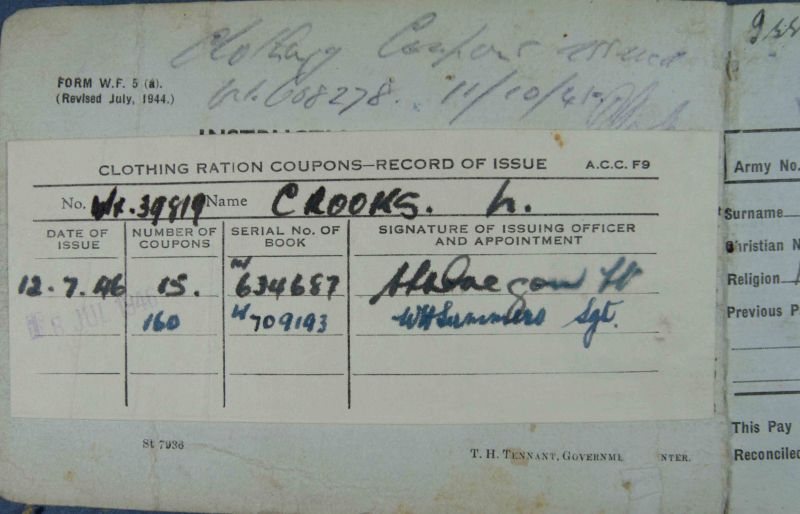 Clothing Coupons issued
608278. 11/10/45
FORM W.F. 5 (a).
(Revised July, 1944.)
CLOTHING RATION COUPONS—RECORD OF ISSUE A.C.C. F9
No. 39819 Name CROOKS. L.
DATE OF ISSUE NUMBER OF COUPONS SERIAL No. OF BOOK SIGNATURE OF ISSUING OFFICER AND APPOINTMENT
12.7.46 15. 634687 Lt
18 JUL 1946 160 709193 WH Summers Sgt.
St 7936
T. H. TENNANT, GOVERNME NTER.
Army No.
Surname
Christian N
Religion
Previous P
This Pay
Reconciled